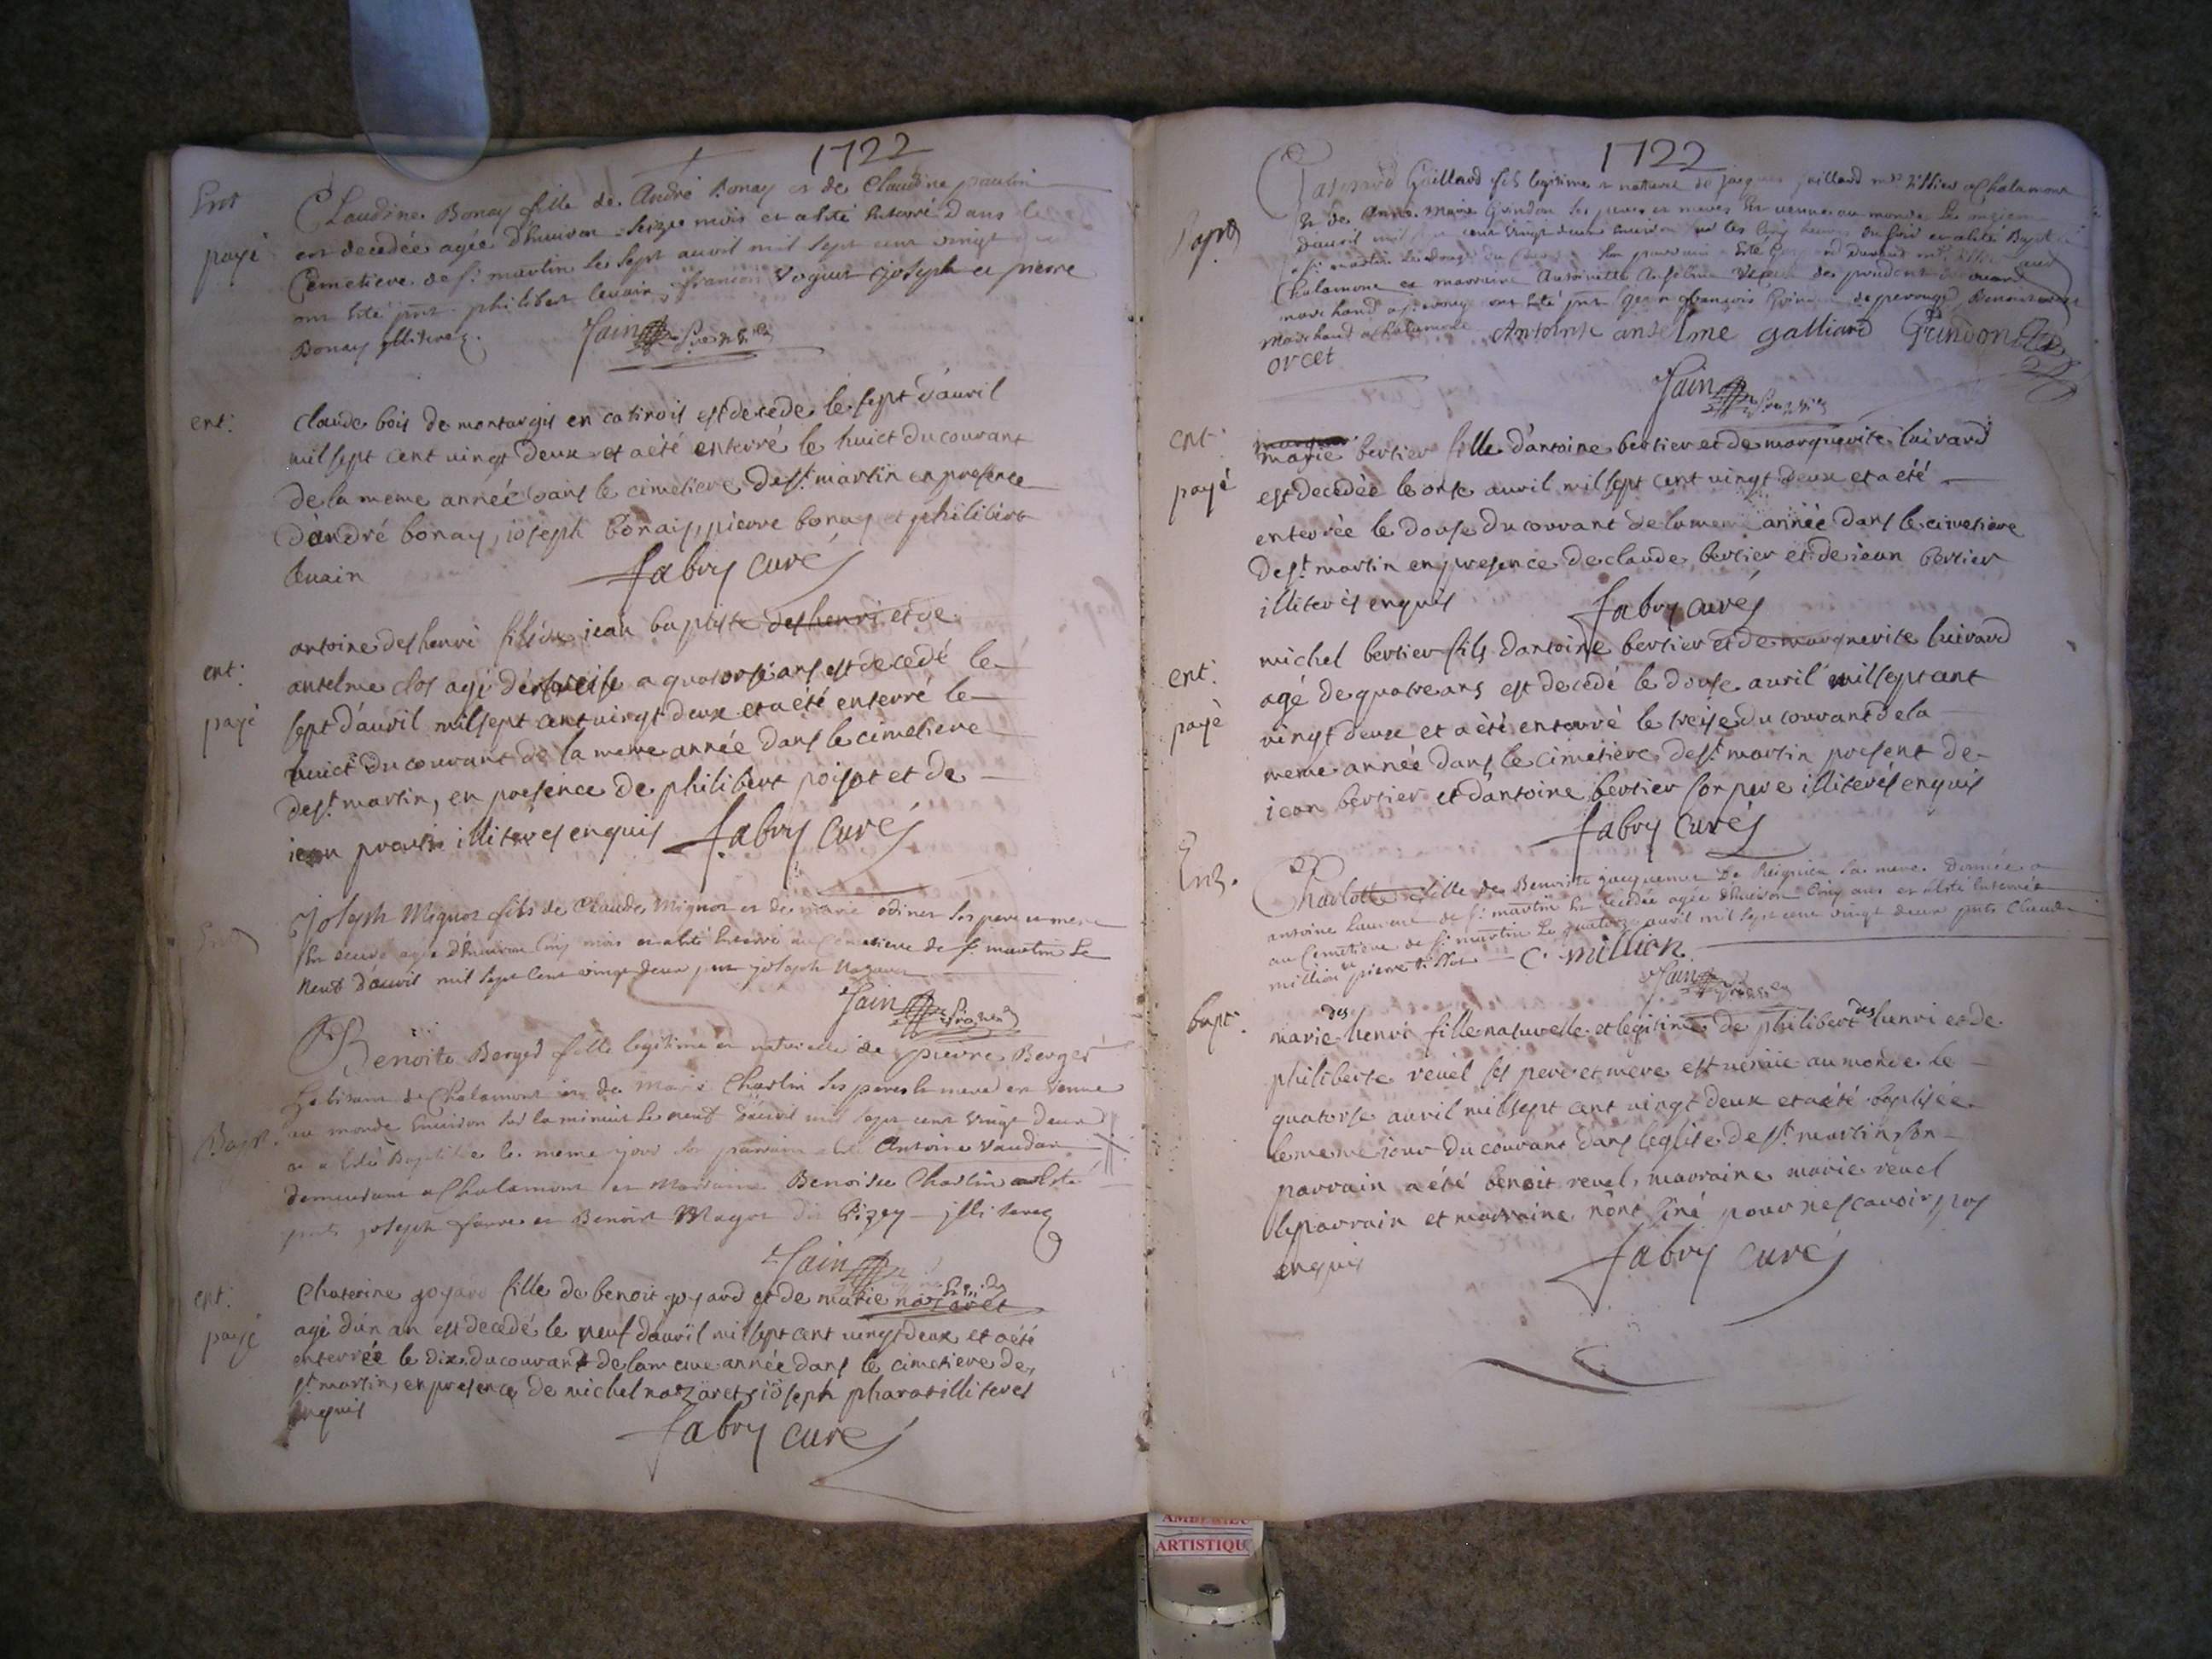 1722
Ent
payé
Claudine Bonay fille de André Bonay et de Claudine
est decedée agée d'environ seize mois et a été enterré dans le
Cemetiere de st martin le sept auril mil sept cent vingt
ont été pnt philibert leuain, françois voguet joseph et pierre
Bonay illiterez.
Jain
ent:
claude bois de montargis en catinois est decede le sept d'auril
mil sept cent vingt deux et a été enterré le huict du courant
de la meme année dans le cimetiere de st martin en presence
d'andré bonay, ioseph bonay, pierre bonay et philibert
leuain
fabry curé
ent:
payé
antoine deshenri fils de iean baptiste deshenri et de
antelme clos agé de treise a quatorse ans est decedé le
sept d'auril mil sept cent vingt deux et a été enterré le
huict du courant de la meme année dans le cimetiere
de st martin, en presence de philibert poisat et de
iean illiterés enquis fabry curé
Ent
Joseph Mignot fils de Claude Mignot et de marie odinet ses pere et mere
est decedé agé d'environ Cinq mois et a été enterré au Cemetiere de st martin le
neuf d'auril mil sept Cent vingt deux pnt joseph
Jain
Bapt.
Benoite Berger fille legitime et naturelle de pierre Berger
habitant de Chalamont et de marie Charlin ses pere et mere est venue
au monde environ sur la minuit le neuf d'auril mil sept cent vingt deux
et a été Baptisée le meme jour son parrain a été Antoine Vaudan
demeurant a Chalamont et Marraine Benoiste Charlin ont été
pnts joseph favre et Benoist Magot dit Pizey illiterez
Jain
ent:
payé
Chaterine goyard fille de benoit goyard et de marie nazaret
agé d'un an est decedé le neuf d'auril mil sept cent vingt deux et a été
enterrée le dix du courant de la meme année dans le cimetiere de
st martin, en presence de michel nazaret, ioseph pharat illiterés
enquis
fabry curé
1722
Bapt
Gaillard fils legitime et naturel de jacques Gaillard md a Chalamont
et de Anne Marie Grindon ses peres et meres est venu au monde le
d'auril mil sept cent vingt deux environ sur les cinq heures du soir et a été Baptisé
a st martin le douze du
Chalamont et marraine Antoinette Anselme
marchand a ont été pnt jean françois Grindon de perouge,
marchand a Chalamont Antoinette anselme galliard Grindon
orcet
Jain
ent:
payé
marie bertier fille d'antoine bertier et de marguerite luivard
est decedée le onse auril mil sept cent vingt deux et a été
enterrée le douse du courant de la meme année dans le cimetiere
de st martin en presence de claude bertier et de iean bertier
illiterés enquis
fabry curé
ent:
payé
michel bertier fils d'antoine bertier et de marguerite luivard
agé de quatre ans est decedé le douse auril mil sept cent
vingt deux et a été enterré le treise du courant de la
meme année dans le cimetiere de st martin present de
iean bertier et d'antoine bertier son pere illiterés enquis
fabry curé
Ent.
Charlotte fille de Benoiste jacquemet De sa mere Donnée a
antoine Laurent de st martin est decedée agée d'environ Cinq ans et a été enterrée
au Cemetiere de st martin le quatorze auril mil sept cent vingt deux pnts Claude
million et pierre C. million
Jain
bapt:
marie des henri fille naturelle et legitime de philibert des henri et de
philiberte revel ses pere et mere est venüe au monde le
quatorse auril mil sept cent vingt deux et a été baptisée
le meme iour du courant dans l'eglise de st martin, son
parrain a été benoit revel, marraine marie revel
le parrain et marraine n'ont siné pour ne scauoir pas
enquis
fabry curé
ARTISTIQU